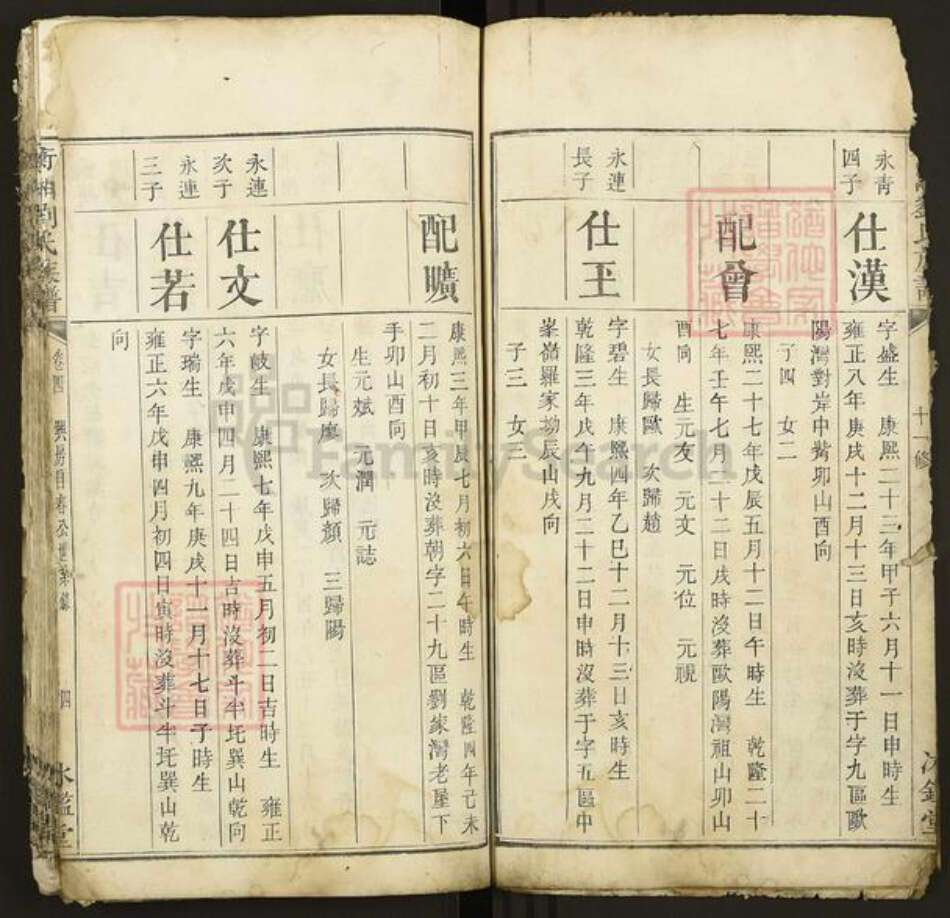 永青
四子
仕漢
字盛生 康熙二十三年甲子六月十一日申時生
雍正八年庚戌十二月十三日亥時沒葬于字九區歐
陽灣對岸中嘴卯山酉向
子四 女二
配曾
康熙二十七年戊辰五月十二日午時生 乾隆二十
七年壬午七月十二日戌時沒葬歐陽灣祖山卯山
酉向 生元友 元文 元位 元視
女長歸歐 次歸趙
永連
長子
仕玉
字碧生 康熙四年乙巳十二月十三日亥時生
乾隆三年戊午九月二十二日申時沒葬于字五區中
峯嶺羅家坳辰山戌向
子三 女三
配曠
康熙三年甲辰七月初六日午時生 乾隆四年己未
二月初十日亥時沒葬朝字二十九區劉家灣老屋下
手卯山酉向
生元斌 元潤 元誌
女長歸廖 次歸顏 三歸陽
永連
次子
仕文
字岐生 康熙七年戊申五月初二日吉時生 雍正
六年戊申四月二十四日吉時沒葬斗半圫巽山乾向
永連
三子
仕若
字瑞生 康熙九年庚戌十一月十七日子時生
雍正六年戊申四月初四日寅時沒葬斗半圫巽山乾
向
衡湘劉氏族譜
卷四
四
氷鑑堂
FamilySearch